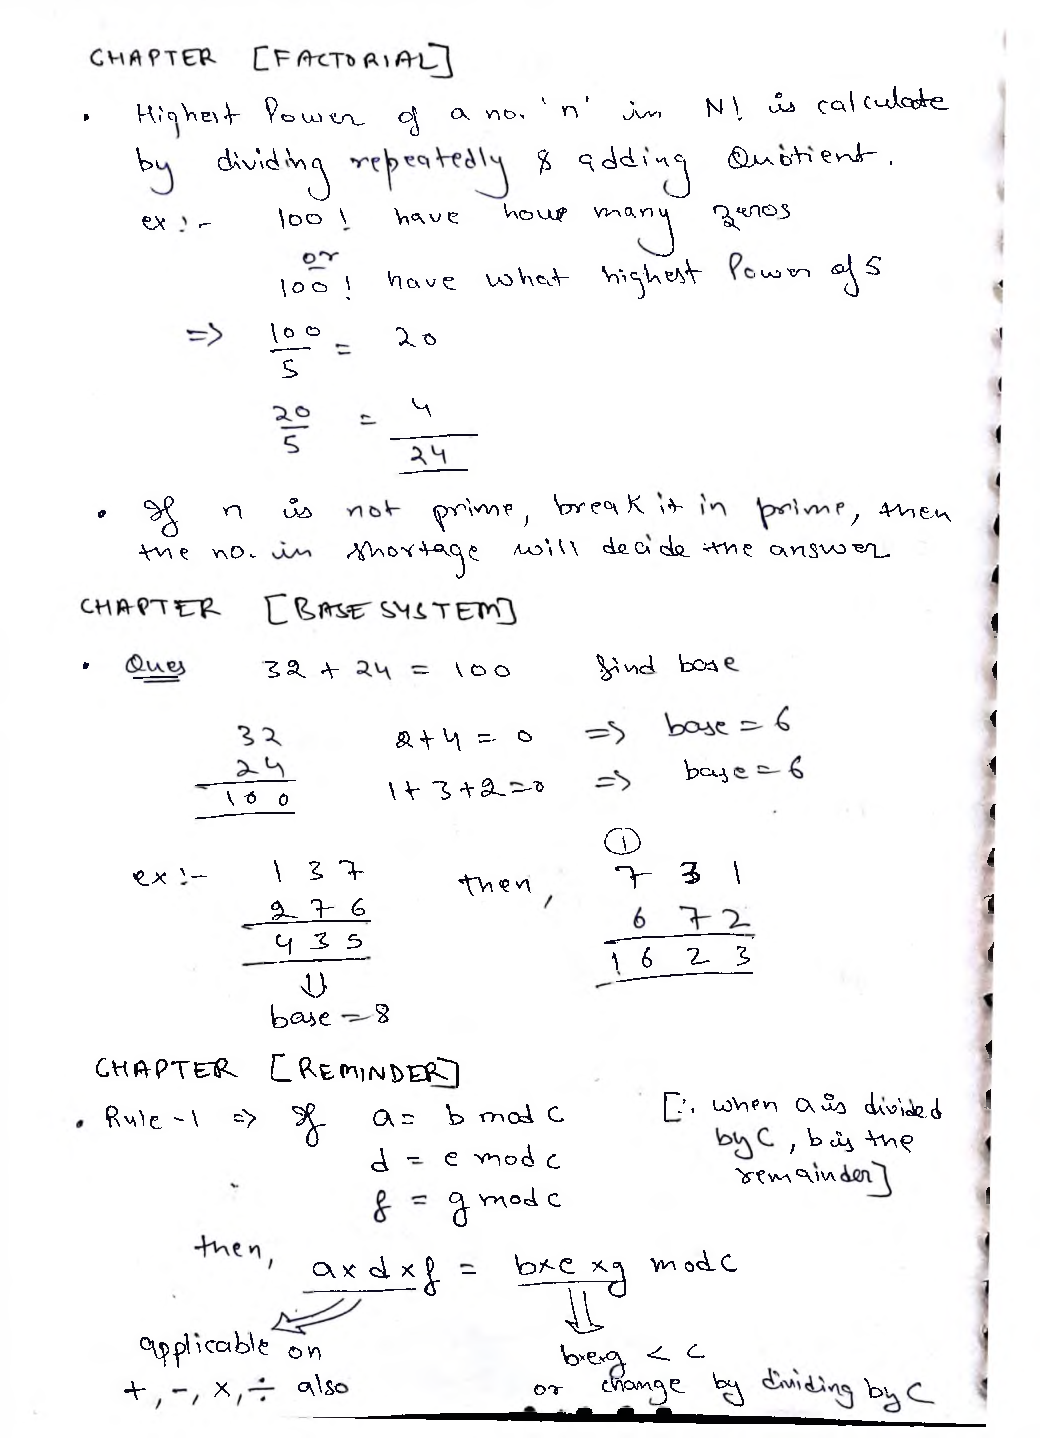 CHAPTER [FACTORIAL]
• Highest Power of a no. 'n' in N! is calculate
by dividing repeatedly & adding Quotient.
ex :- 100! have how many zeros
or
100! have what highest Power of 5
=> 100/5 = 20
20/5 = 4
24
• If n is not prime, break it in prime, then
the no. in shortage will decide the answer
CHAPTER [BASE SYSTEM]
• Ques 32 + 24 = 100 find base
32 2+4 = 0 => base = 6
24 1+3+2=0 => base = 6
100
1
ex :- 137 then, 731
276 672
435 1623
⇓
base = 8
CHAPTER [REMINDER]
• Rule-1 => If a = b mod c [∵ when a is divided
d = e mod c by C, b is the
f = g mod c remainder]
then, a x d x f = b x e x g mod c
applicable on b×e×g < c
+, -, x, ÷ also or change by dividing by C